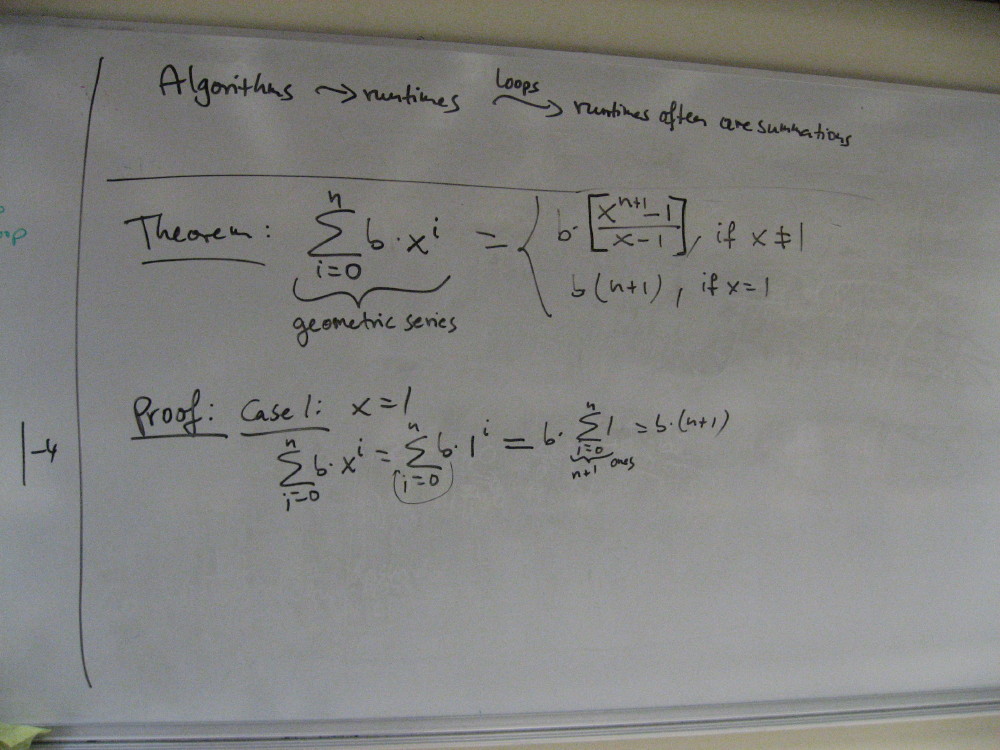 Algorithms → runtimes →(Loops) runtimes often are summations
Theorem: \sum_{i=0}^{n} b · x^i = { b · [\frac{x^{n+1}-1}{x-1}], if x ≠ 1
b(n+1), if x=1
geometric series
Proof: Case 1: x=1
\sum_{i=0}^{n} b · x^i = \sum_{i=0}^{n} b · 1^i = b · \sum_{i=0}^{n} 1 = b · (n+1)
n+1 ones
-4